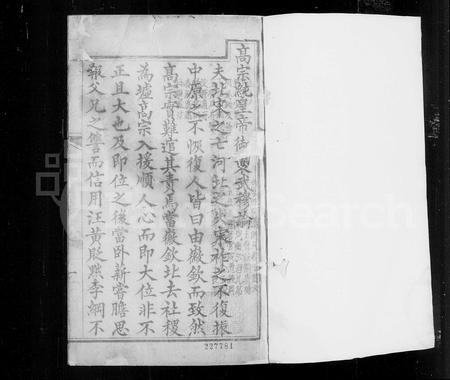 高宗純皇帝御製岳武穆論
夫北宋之亡河北之失宋祚之不復振
中原之不恢復人皆曰由徽欽而致然
高宗實難逭其責焉當徽欽北去社稷
為墟高宗入援順人心而即大位非不
正且大也及即位之後當卧薪嘗膽思
報父兄之讐而信用汪黄貶黜李綱不
227781
Search